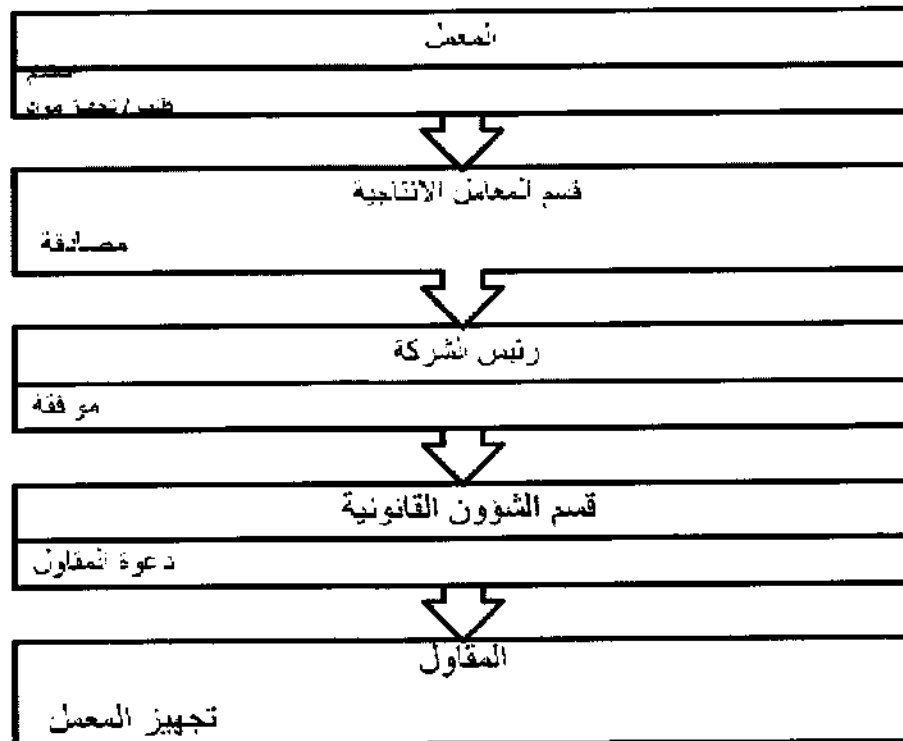 المعمل
طلب / تجهيز مواد
قسم المعامل الانتاجية
مصادقة
رئيس الشركة
موافقة
قسم الشؤون القانونية
دعوة المقاول
المقاول
تجهيز المعمل